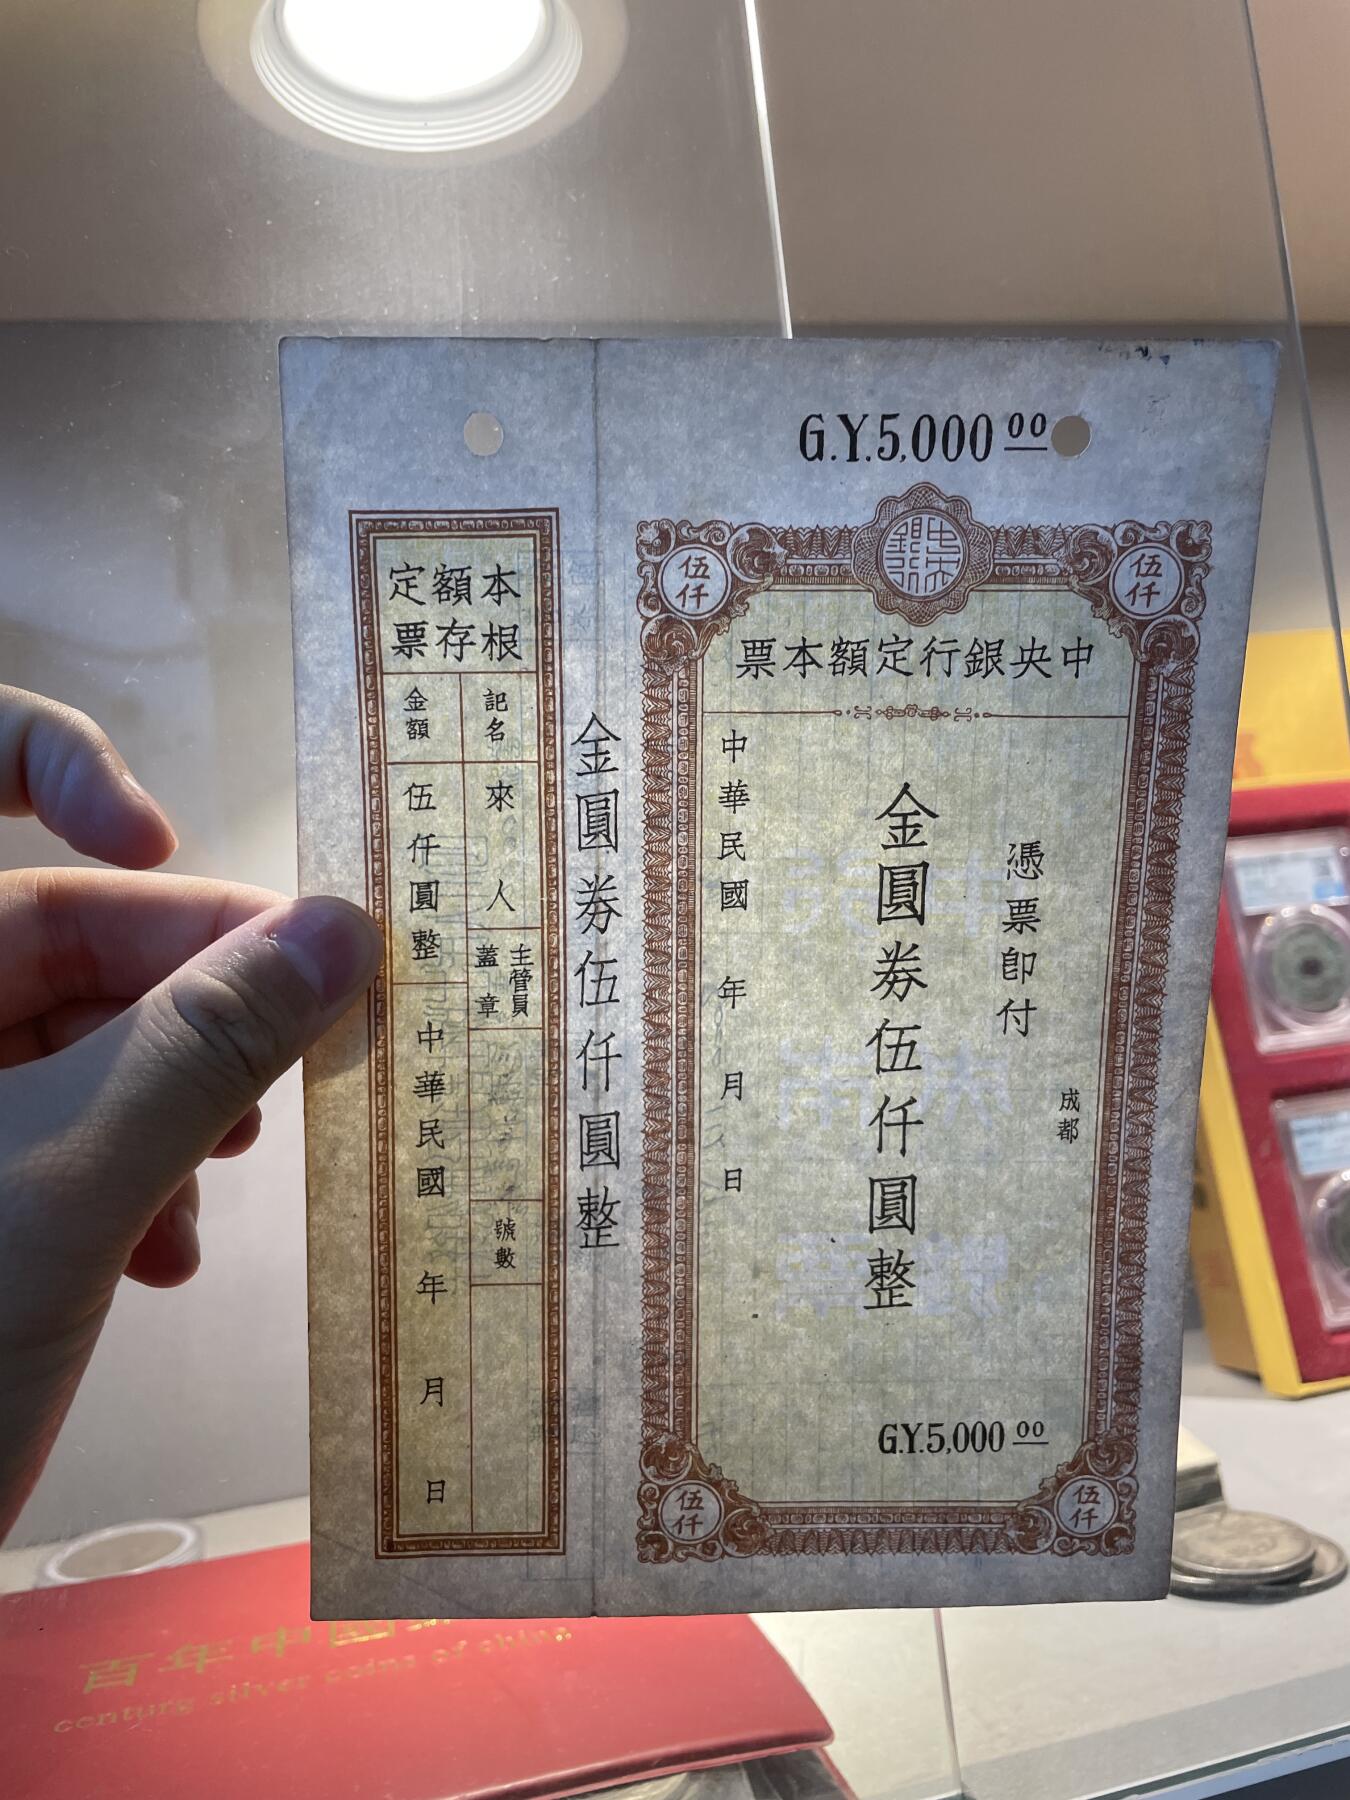 G.Y.5,000 00
中央銀行
伍仟
伍仟
中央銀行定額本票
憑票即付
成都
金圓券伍仟圓整
中華民國 年 月 日
G.Y.5,000 00
伍仟
伍仟
金圓券伍仟圓整
本額定
根存票
記名
來人
主管員
蓋章
號數
金額
伍仟圓整
中華民國 年 月 日
百年中國
centurg silver coins of china